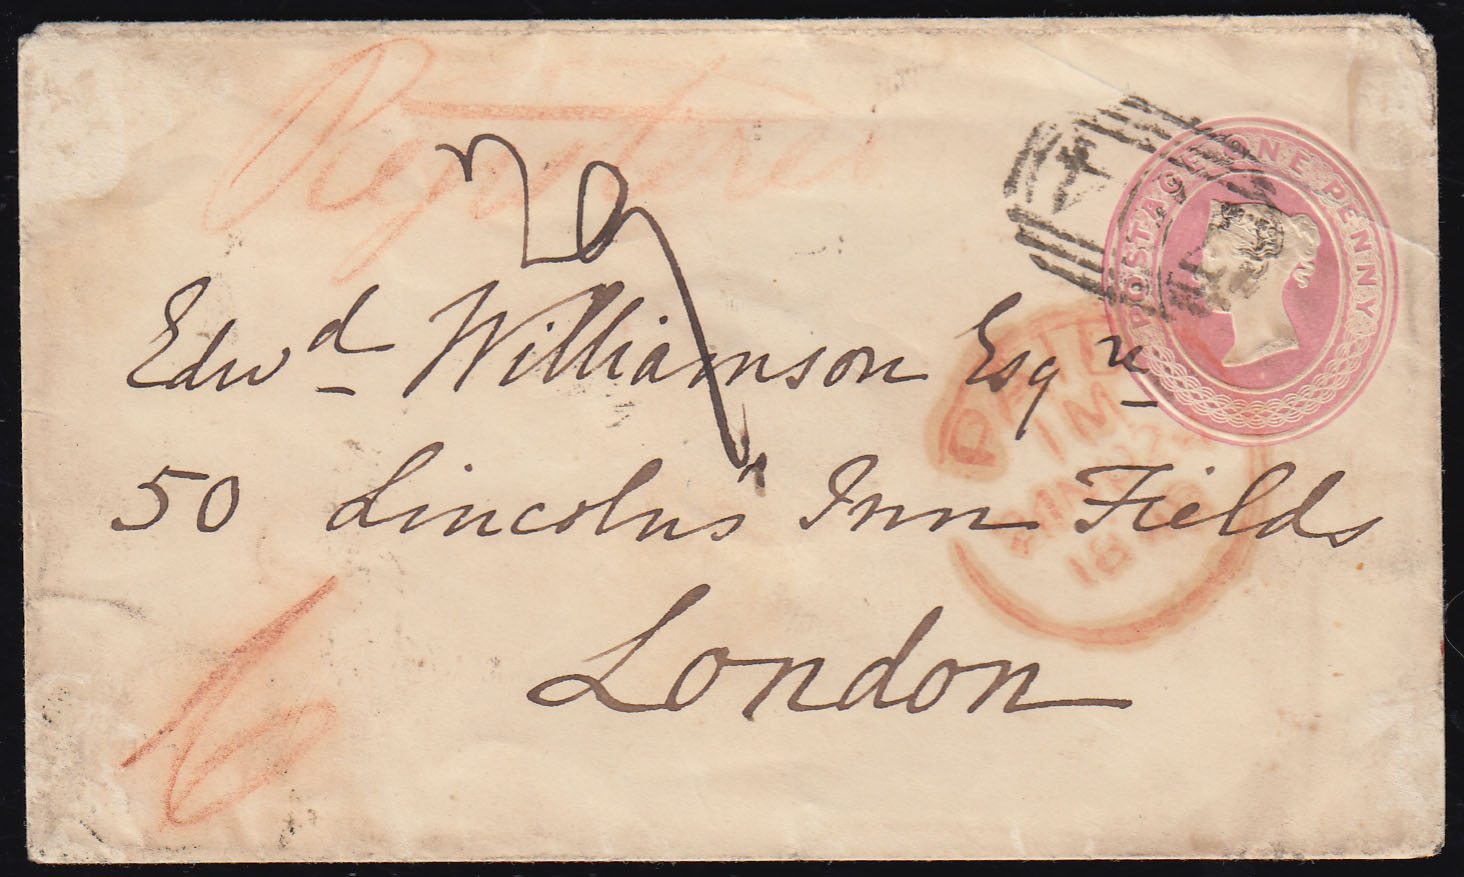 Registered
POSTAGE ONE PENNY
Edwd Williamson Esqre
PAID
1M
50 Lincolns Inn Fields
18
London
6